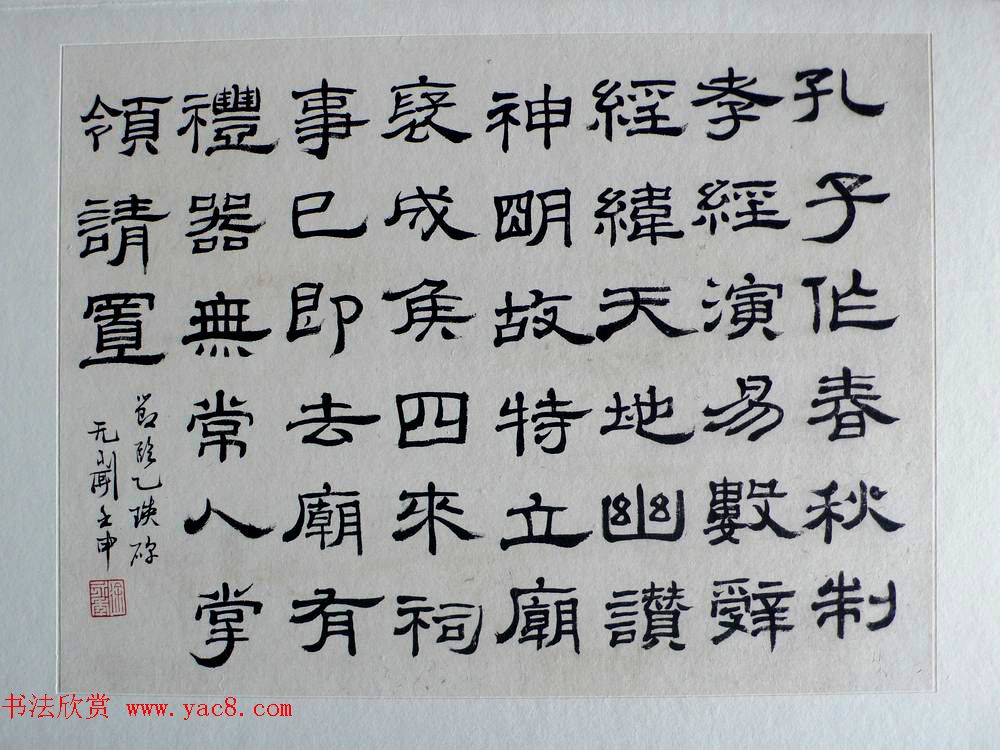 孔子作春秋制
孝經演易數辭
經緯天地幽讚
神明故特立廟
襃成侯四來祠
事已即去廟有
禮器無常人掌
領請置
節臨乙瑛碑
无聞壬申
书法欣赏 www.yac8.com